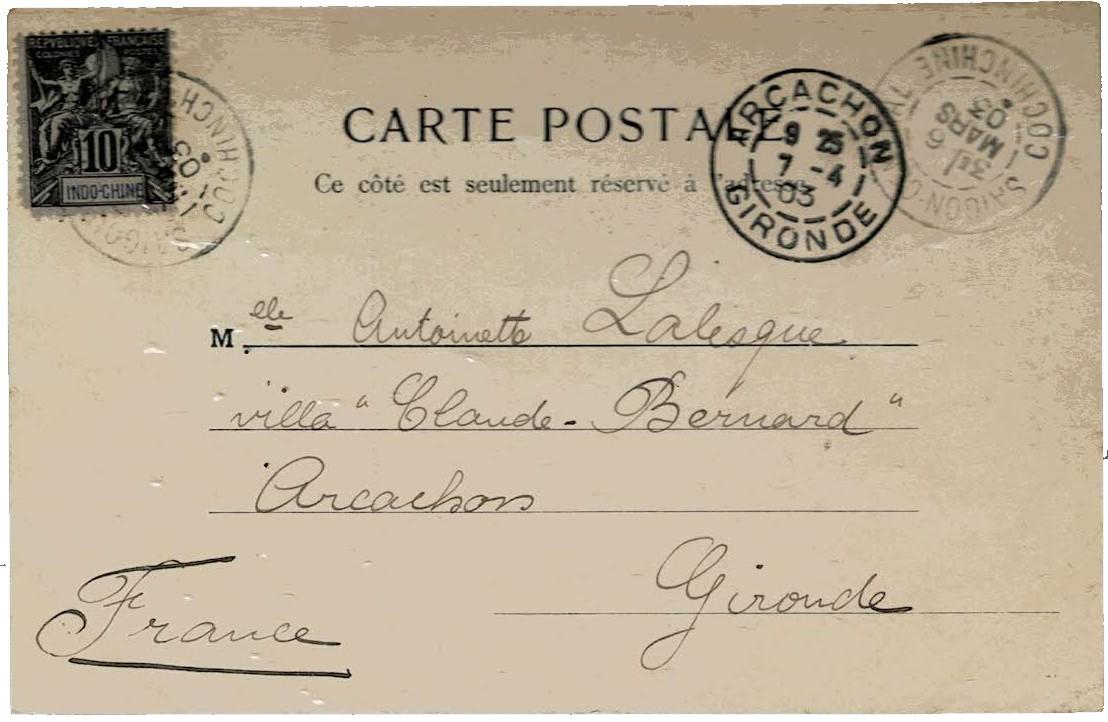 REPVBLIQUE FRANÇAISE
COLONIES POSTES
10
INDO-CHINE
COCHINCH
03
CARTE POSTALE
Ce côté est seulement réservé à l'adresse
ARCACHON
9 25
7 - 4
03
GIRONDE
SAIGON-CENTRAL
3E/
6
1 MARS
03
COCHINCHINE
Melle Antoinette Lalesque
villa "Claude-Bernard"
Arcachon
Gironde
France